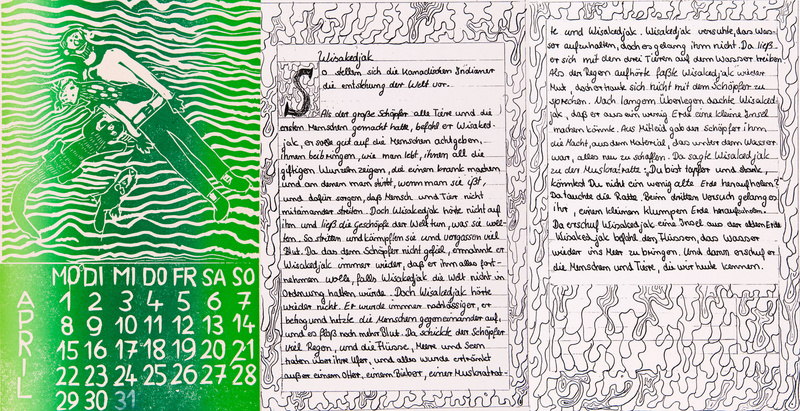 MO DI MI DO FR SA SO
1 2 3 4 5 6 7
8 9 10 11 12 13 14
15 16 17 18 19 20 21
22 23 24 25 26 27 28
29 30 31
APRIL
Wisakedjak
So stellen sich die kanadischen Indianer
die entstehung der Welt vor.
Als der große Schöpfer alle Tiere und die
ersten Menschen gemacht hatte, befahl er Wisaked-
jak, er solle gut auf die Menschen achtgeben,
ihnen beibringen, wie man lebt, ihnen all die
giftigen Wurzeln zeigen, die einen krank machen
und an denen man stirbt, wenn man sie ißt,
und dafür sorgen, daß Mensch und Tier nicht
miteinander streiten. Doch Wisakedjak hörte nicht auf
ihn und ließ die Geschöpfe der Welt tun, was sie woll-
ten. So stritten und kämpften sie und vergossen viel
Blut. Da das dem Schöpfer nicht gefiel, ermahnte er
Wisakedjak immer wieder, daß er ihm alles fort-
nehmen wolle, falls Wisakedjak die Welt nicht in
Ordnung halten würde. Doch Wisakedjak hörte
wieder nicht. Er wurde immer nachlässiger, er
betrog und hetzte die Menschen gegeneinander auf,
und es floß noch mehr Blut. Da schickt der Schöpfer
viel Regen, und die Flüsse, Meere und Seen
traten über ihre Ufer, und alles wurde ertränkt
außer einem Otter, einem Bieber, einer Muskratrat-
te und Wisakedjak. Wisakedjak versuchte, das Was-
ser aufzuhalten, doch es gelang ihm nicht. Da ließ
er sich mit den drei Tieren auf dem Wasser treiben
Als der Regen aufhörte faßte Wisakedjak wieder
Mut, doch er traute sich nicht mit dem Schöpfer zu
sprechen. Nach langem Überlegen dachte Wisaked-
jak, daß er aus ein wenig Erde eine kleine Insel
machen könnte. Aus Mitleid gab der Schöpfer ihm
die Macht, aus dem Material, das unter dem Wasser
war, alles neu zu schaffen. Da sagte Wisakedjak
zu der Muskratratte: „Du bist tapfer und stark,
könntest Du nicht ein wenig alte Erde heraufholen?
Da tauchte die Ratte. Beim dritten Versuch gelang es
ihr, einen kleinen Klumpen Erde heraufzuholen.
Da erschuf Wisakedjak eine Insel aus der alten Erde
Wisakedjak befahl den Flüssen, das Wasser
wieder ins Meer zu bringen. Und dann erschuf er
die Menschen und Tiere, die wir heute kennen.